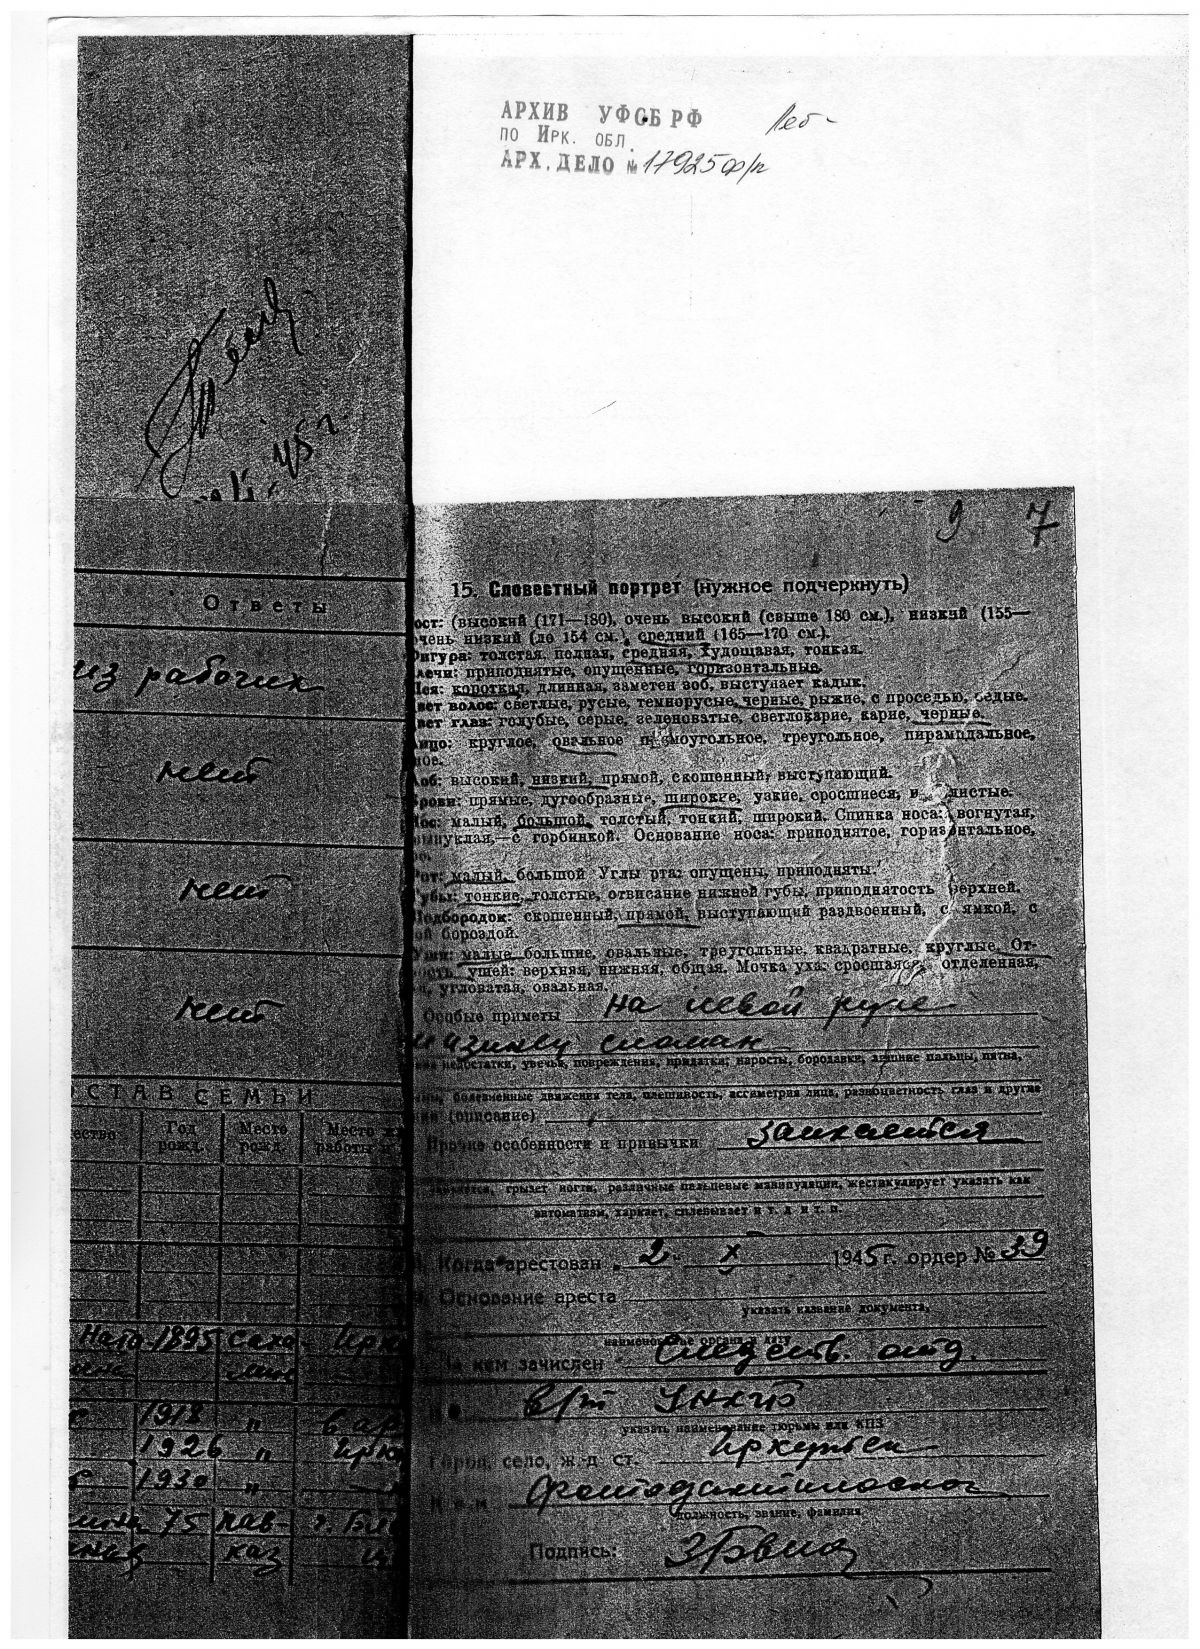 АРХИВ УФСБ РФ
ПО ИРК. ОБЛ.
АРХ. ДЕЛО № 17925 ф/п
45 г.
9 7
Ответы
из рабочих
нет
нет
нет
СТАВ СЕМЬИ
ество Год рожд. Место рожд. Место работы и
Ната 1895 Саха- Ирк
лин
1918 " в ар
1926 " Ирк
1930 "
75 Кав г. Бла
каз
15. Словестный портрет (нужное подчеркнуть)
ост: (высокий (171—180), очень высокий (свыше 180 см.), низкий (155—
чень низкий (до 154 см.), средний (165—170 см.).
Фигура: толстая, полная, средняя, худощавая, тонкая.
лечи: приподнятые, опущенные, горизонтальные.
Шея: короткая, длинная, заметен зоб, выступает кадык.
вет волос: светлые, русые, темнорусые, черные, рыжие, с проседью, седые.
вет глаз: голубые, серые, зеленоватые, светлокарие, карие, черные.
Лицо: круглое, овальное прямоугольное, треугольное, пирамидальное,
ное.
Лоб: высокий, низкий, прямой, скошенный, выступающий.
Брови: прямые, дугообразные, широкие, узкие, сросшиеся, истые.
Нос: малый, большой, толстый, тонкий, широкий. Спинка носа: вогнутая,
выпуклая,—с горбинкой. Основание носа: приподнятое, горизонтальное,
Рот: малый, большой Углы рта: опущены, приподняты.
Губы: тонкие, толстые, отвисание нижней губы, приподнятость верхней.
Подбородок: скошенный, прямой, выступающий раздвоенный, с ямкой, с
ой бороздой.
Уши: малые, большие, овальные, треугольные, квадратные, круглые. От-
ость ушей: верхняя, нижняя, общая. Мочка уха: сросшаяся, отделенная,
угловатая, овальная.
Особые приметы на левой руке
мизинец сломан
недостатки, увечья, повреждения, придатки: наросты, бородавки, лишние пальцы, пятна,
болезненные движения тела, плешивость, ассиметрия лица, разноцветность глаз и другие
(описание)
Прочие особенности и привычки заикается
грызет ногти, различные пальцевые манипуляции, жестикулирует указать как
автоматизм, харкает, сплевывает и т. д и т. п.
Когда арестован „ 2 " X 1945 г. ордер № 39
Основание ареста
указать название документа,
наименование органа и дату
За кем зачислен Следств. отд.
в/т УНКГБ
указать наименование тюрьмы или КПЗ
Город, село, ж-д ст. Иркутск
должность, звание, фамилия
Подпись: